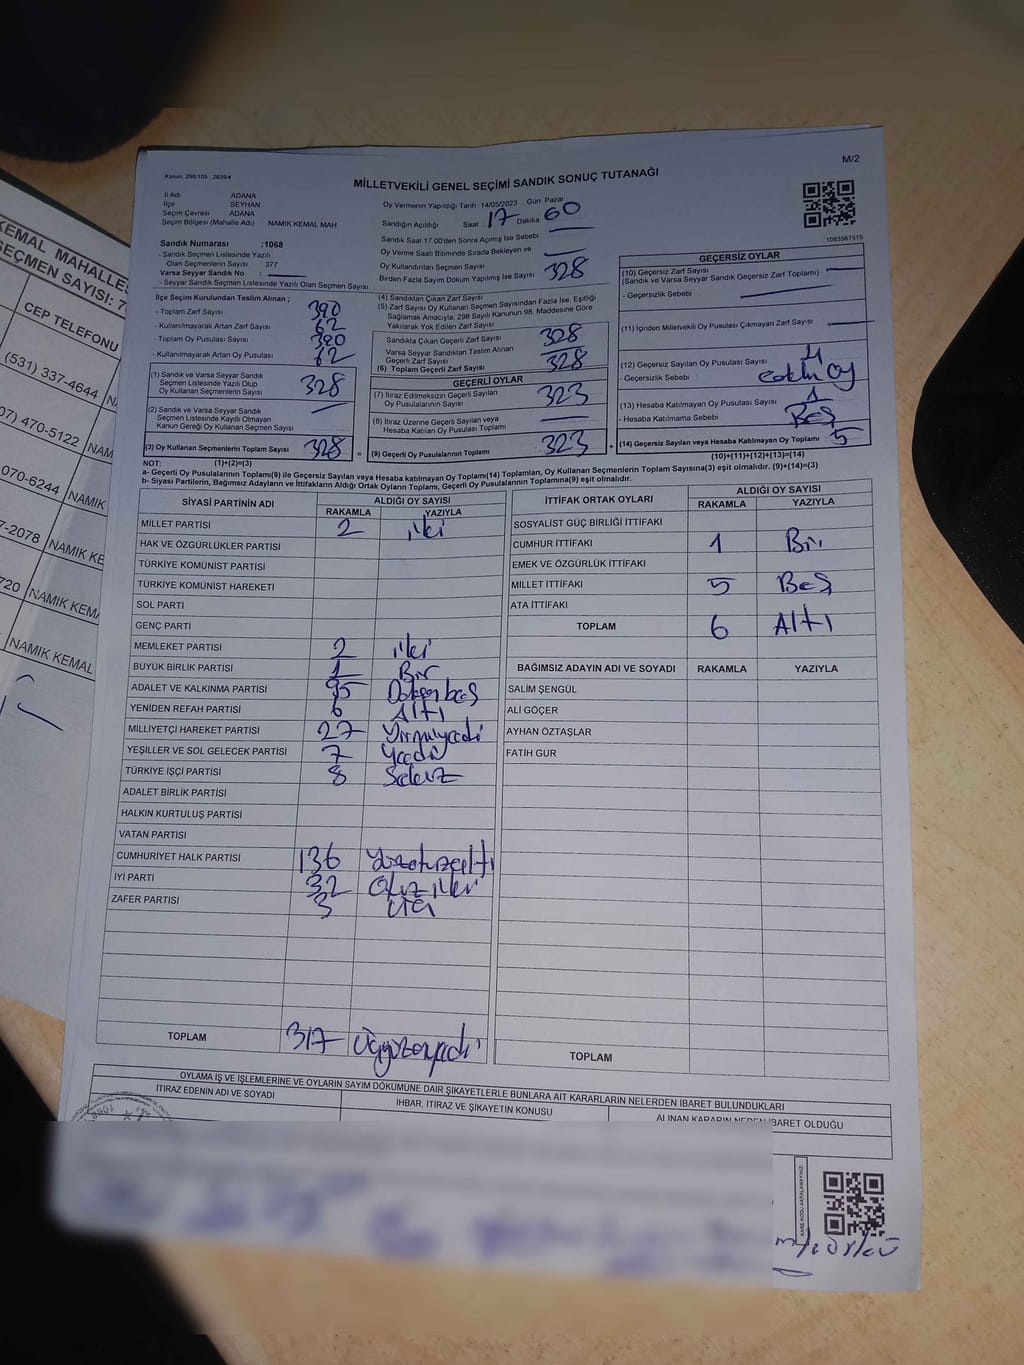 M/2
Kanun: 298/105 , 2839/4
MİLLETVEKİLİ GENEL SEÇİMİ SANDIK SONUÇ TUTANAĞI
İl Adı ADANA
İlçe SEYHAN
Seçim Çevresi ADANA
Seçim Bölgesi (Mahalle Adı) NAMIK KEMAL MAH
Sandık Numarası :1068
- Sandık Seçmen Listesinde Yazılı
Olan Seçmenlerin Sayısı 377
Varsa Seyyar Sandık No :
- Seyyar Sandık Seçmen Listesinde Yazılı Olan Seçmen Sayısı
Oy Vermenin Yapıldığı Tarih :14/05/2023 Gün: Pazar
Sandığın Açıldığı Saat 17 Dakika 60
Sandık Saat 17.00'den Sonra Açılmış İse Sebebi
Oy Verme Saati Bitiminde Sırada Bekleyen ve
Oy Kullandırılan Seçmen Sayısı
Birden Fazla Sayım Döküm Yapılmış İse Sayısı 328
1083567515
İlçe Seçim Kurulundan Teslim Alınan ;
- Toplam Zarf Sayısı 390
- Kullanılmayarak Artan Zarf Sayısı 62
- Toplam Oy Pusulası 390
- Kullanılmayarak Artan Oy Pusulası 62
(1) Sandık ve Varsa Seyyar Sandık
Seçmen Listesinde Yazılı Olup
Oy Kullanan Seçmenlerin Sayısı 328
(2) Sandık ve Varsa Seyyar Sandık
Seçmen Listesinde Kayıtlı Olmayan
Kanun Gereği Oy Kullanan Seçmen Sayısı
(3) Oy Kullanan Seçmenlerin Toplam Sayısı 328
(1)+(2)=(3)
(4) Sandıktan Çıkan Zarf Sayısı
(5) Zarf Sayısı Oy Kullanan Seçmen Sayısından Fazla İse, Eşitliği
Sağlamak Amacıyla, 298 Sayılı Kanunun 98. Maddesine Göre
Yakılarak Yok Edilen Zarf Sayısı
Sandıkta Çıkan Geçerli Zarf Sayısı 328
Varsa Seyyar Sandıktan Teslim Alınan
Geçerli Zarf Sayısı
(6) Toplam Geçerli Zarf Sayısı 328
GEÇERLİ OYLAR
(7) İtiraz Edilmeksizin Geçerli Sayılan
Oy Pusulalarının Sayısı 323
(8) İtiraz Üzerine Geçerli Sayılan veya
Hesaba Katılan Oy Pusulası Toplamı
= (9) Geçerli Oy Pusulalarının Toplamı 323 +
GEÇERSİZ OYLAR
(10) Geçersiz Zarf Sayısı
(Sandık ve Varsa Seyyar Sandık Geçersiz Zarf Toplamı)
- Geçersizlik Sebebi
(11) İçinden Milletvekili Oy Pusulası Çıkmayan Zarf Sayısı
(12) Geçersiz Sayılan Oy Pusulası Sayısı 4
- Geçersizlik Sebebi
(13) Hesaba Katılmayan Oy Pusulası Sayısı 1
- Hesaba Katılmama Sebebi Beş
(14) Geçersiz Sayılan veya Hesaba Katılmayan Oy Toplamı 5
(10)+(11)+(12)+(13)=(14)
NOT:
a- Geçerli Oy Pusulalarının Toplamı(9) ile Geçersiz Sayılan veya Hesaba Katılmayan Oy Toplamı(14) Toplamları, Oy Kullanan Seçmenlerin Toplam Sayısına(3) eşit olmalıdır. (9)+(14)=(3)
b- Siyasi Partilerin, Bağımsız Adayların ve İttifakların Aldığı Ortak Oyların Toplamı, Geçerli Oy Pusulalarının Toplamına(9) eşit olmalıdır.
SİYASİ PARTİNİN ADI ALDIĞI OY SAYISI
RAKAMLA YAZIYLA
MİLLET PARTİSİ 2 iki
HAK VE ÖZGÜRLÜKLER PARTİSİ
TÜRKİYE KOMÜNİST PARTİSİ
TÜRKİYE KOMÜNİST HAREKETİ
SOL PARTİ
GENÇ PARTİ
MEMLEKET PARTİSİ 2 iki
BÜYÜK BİRLİK PARTİSİ 1 Bir
ADALET VE KALKINMA PARTİSİ 95 Doksanbeş
YENİDEN REFAH PARTİSİ 6 Altı
MİLLİYETÇİ HAREKET PARTİSİ 27 Yirmiyedi
YEŞİLLER VE SOL GELECEK PARTİSİ 7 Yedi
TÜRKİYE İŞÇİ PARTİSİ 8 Sekiz
ADALET BİRLİK PARTİSİ
HALKIN KURTULUŞ PARTİSİ
VATAN PARTİSİ
CUMHURİYET HALK PARTİSİ 136 Yüzotuzaltı
İYİ PARTİ 32 Otuz iki
ZAFER PARTİSİ 3 Üç
TOPLAM 317 Üçyüzonyedi
İTTİFAK ORTAK OYLARI ALDIĞI OY SAYISI
RAKAMLA YAZIYLA
SOSYALİST GÜÇ BİRLİĞİ İTTİFAKI
CUMHUR İTTİFAKI 1 Bir
EMEK VE ÖZGÜRLÜK İTTİFAKI
MİLLET İTTİFAKI 5 Beş
ATA İTTİFAKI
TOPLAM 6 Altı
BAĞIMSIZ ADAYIN ADI VE SOYADI RAKAMLA YAZIYLA
SALİM ŞENGÜL
ALİ GÖÇER
AYHAN ÖZTAŞLAR
FATİH GUR
TOPLAM
OYLAMA İŞ VE İŞLEMLERİNE VE OYLARIN SAYIM DÖKÜMÜNE DAİR ŞİKAYETLERLE BUNLARA AİT KARARLARIN NELERDEN İBARET BULUNDUKLARI
İTİRAZ EDENİN ADI VE SOYADI
İHBAR, İTİRAZ VE ŞİKAYETİN KONUSU
ALINAN KARARIN NEDEN İBARET OLDUĞU
KEMAL MAHALLES
SEÇMEN SAYISI: 7
CEP TELEFONU
(531) 337-4644 NA
07) 470-5122 NAM
070-6244 NAMIK
7-2078 NAMIK KE
720 NAMIK KEMA
NAMIK KEMAL